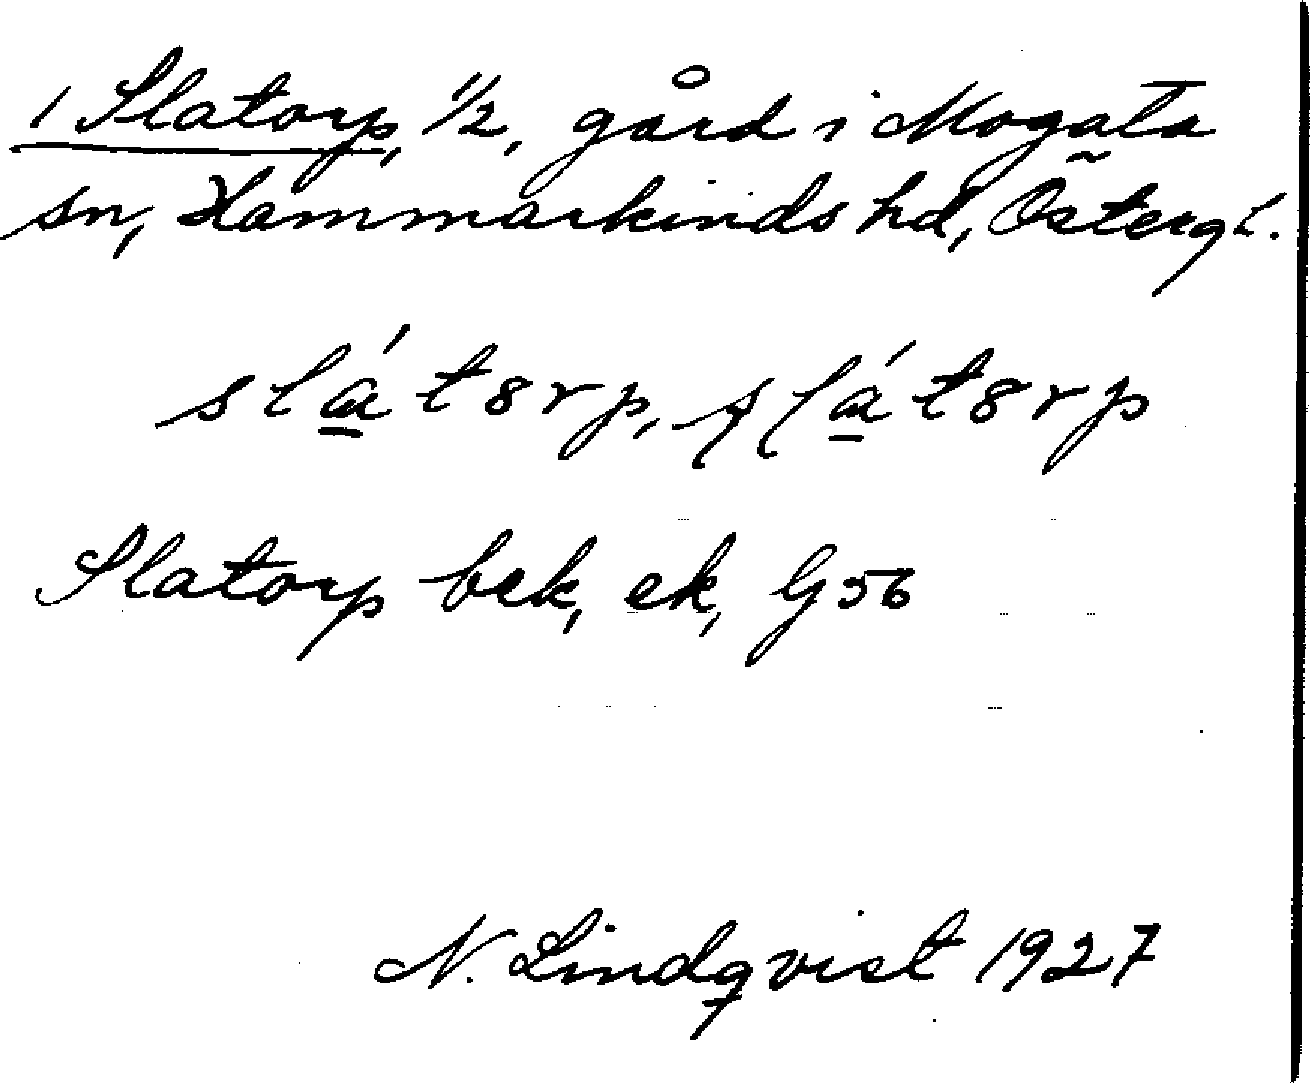 1 Slatorp, 1/2, gård i Mogata
sn, Hammarkinds hd, Östergl.
slát8rp, ʂɭát8rp
Slatorp bek, ek, G56
N. Lindqvist 1927